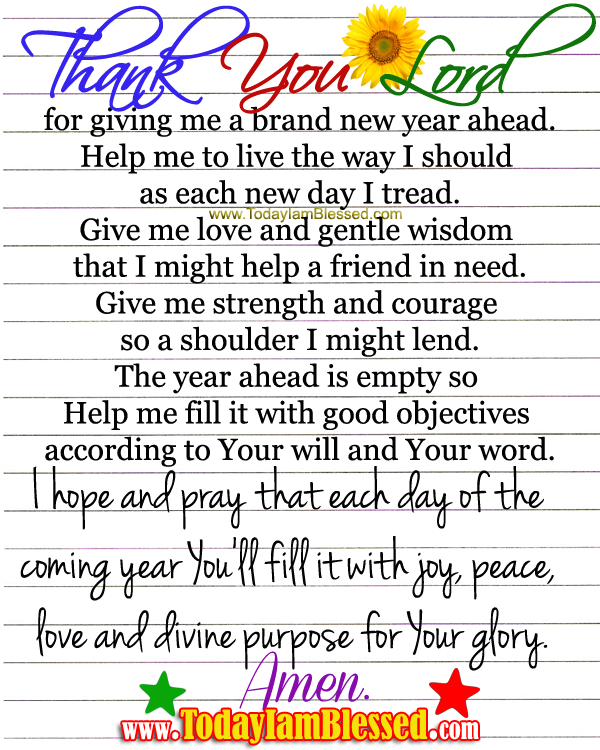 Thank You Lord
for giving me a brand new year ahead.
Help me to live the way I should
as each new day I tread.
www.TodayIamBlessed.com
Give me love and gentle wisdom
that I might help a friend in need.
Give me strength and courage
so a shoulder I might lend.
The year ahead is empty so
Help me fill it with good objectives
according to Your will and Your word.
I hope and pray that each day of the
coming year You'll fill it with joy, peace,
love and divine purpose for Your glory.
Amen.
www.TodayIamBlessed.com